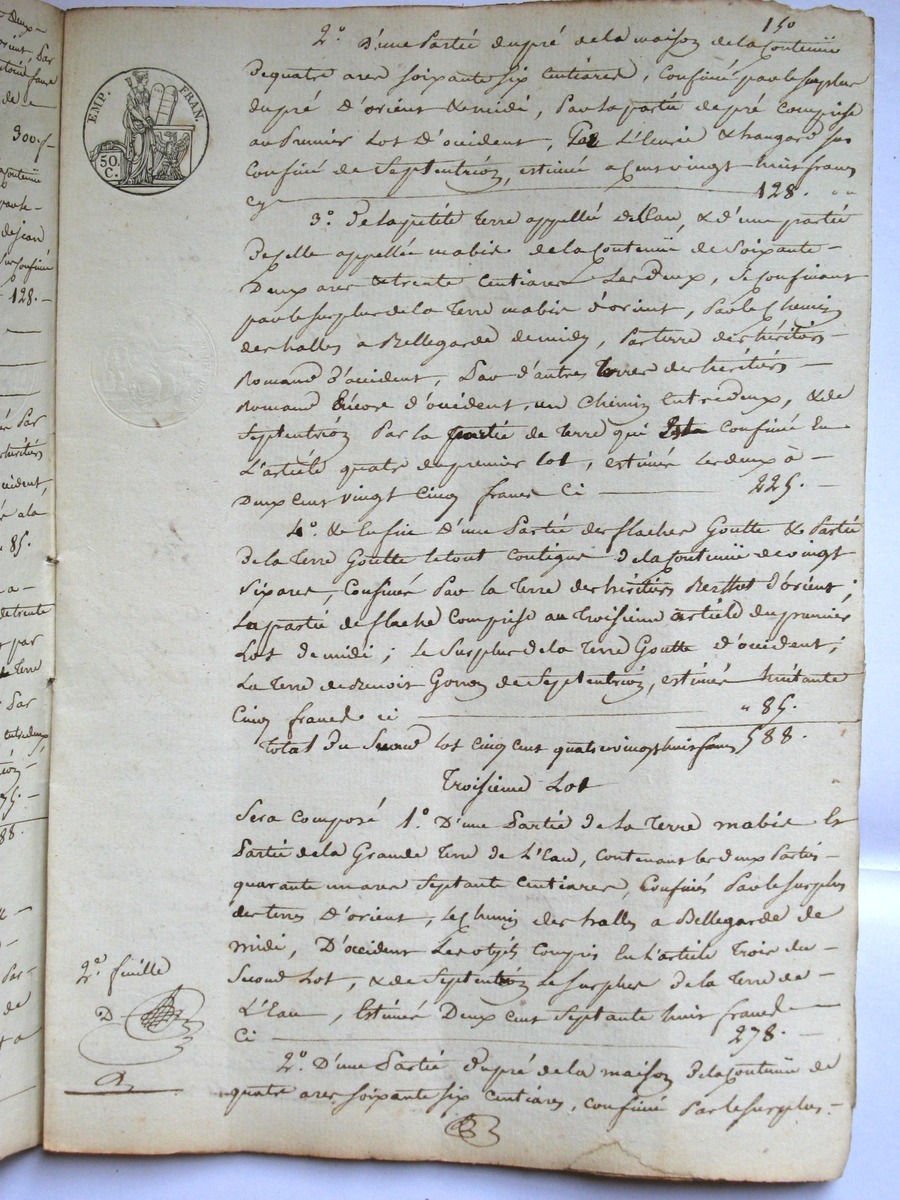 150
2° D'une Partie du pré de la maison de la Contenüe
de quatre ares soixante six Centiares, Confiné par le surplus
du pré D'orient & midi, Par la partie de pré Comprise
au Premier Lot D'occident, Par L'Ecurie & hangard
Confiné de Septentrion, estimée a Cent vingt huit francs
cy 128.
3° De la petite Terre appellée de L'Eau, & d'une partie
de celle appellée mabise de la Contenüe de Soixante
Deux ares & trente Centiares Les deux, Se Confinant
par le surplus de la Terre mabise d'orient, Par le Chemin
des halles a Bellegarde de midy, Par terre des héritiers
Romand d'occident, Par d'autres Terres des héritiers
Romand Encore d'occident, un Chemin Entre deux, & de
Septentrion Par la partie de Terre qui Est Confinée En
L'article quatre du premier Lot, estimées Les deux à
Deux cent vingt Cinq francs Ci 225.
4° & Enfin d'une Partie des flaches Goutte & Partie
de la Terre Goutte le tout Contigue de la Contenüe de vingt
Six ares, Confinée Par la Terre des héritiers Berthet d'orient;
La partie de flache Comprise au Troisieme article du premier
Lot de midi; Le Surplus de la Terre Goutte d'occident;
La Terre de Benoit Gonon de Septentrion, estimée huitante
Cinq francs ci " 85.
Total du Second lot cinq cent quatre vingt huit francs 588.
Troisieme Lot
Sera Composé 1° D'une Partie de La Terre mabise Et
Partie de la Grande Terre de L'Eau, Contenant les deux Parties
quarante un ares Septante Centiares, Confinés Par le surplus
des terres D'orient, Le Chemin des halles a Bellegarde de
midi, D'occident Les objets Compris En L'article Trois du
Second Lot, & de Septentrion Le surplus de la Terre de
L'Eau, Estimée Deux Cent Septante huit francs
Ci 278.
2° D'une Partie du pré de la maison de la Contenüe de
quatre ares soixante six Centiares, Confiné Par le surplus
EMP. FRAN.
50 C.
2e feuille
D